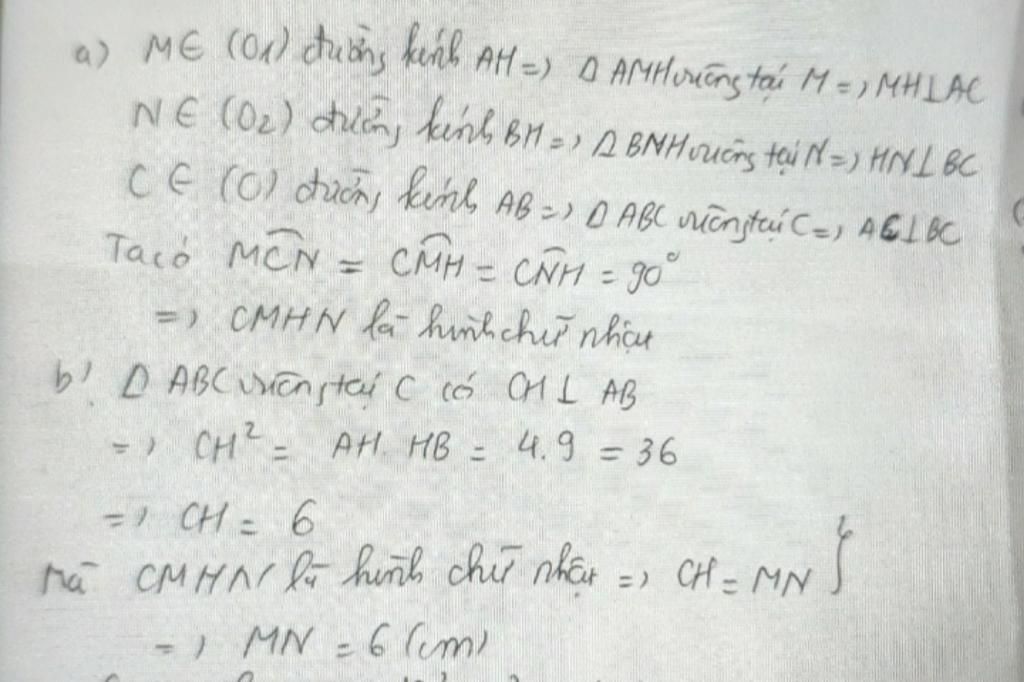 a) M∈ (O1) đường kính AH => Δ AMH vuông tại M => MH⊥AC
N∈ (O2) đường kính BH => Δ BNH vuông tại N => HN⊥BC
C∈ (O) đường kính AB => Δ ABC vuông tại C => AC⊥BC
Ta có MCN = CMH = CNH = 90°
=> CMHN là hình chữ nhật
b) Δ ABC vuông tại C có CH⊥ AB
=> CH² = AH. HB = 4.9 = 36
=> CH = 6
Mà CMHN là hình chữ nhật => CH = MN }
=> MN = 6 (cm)